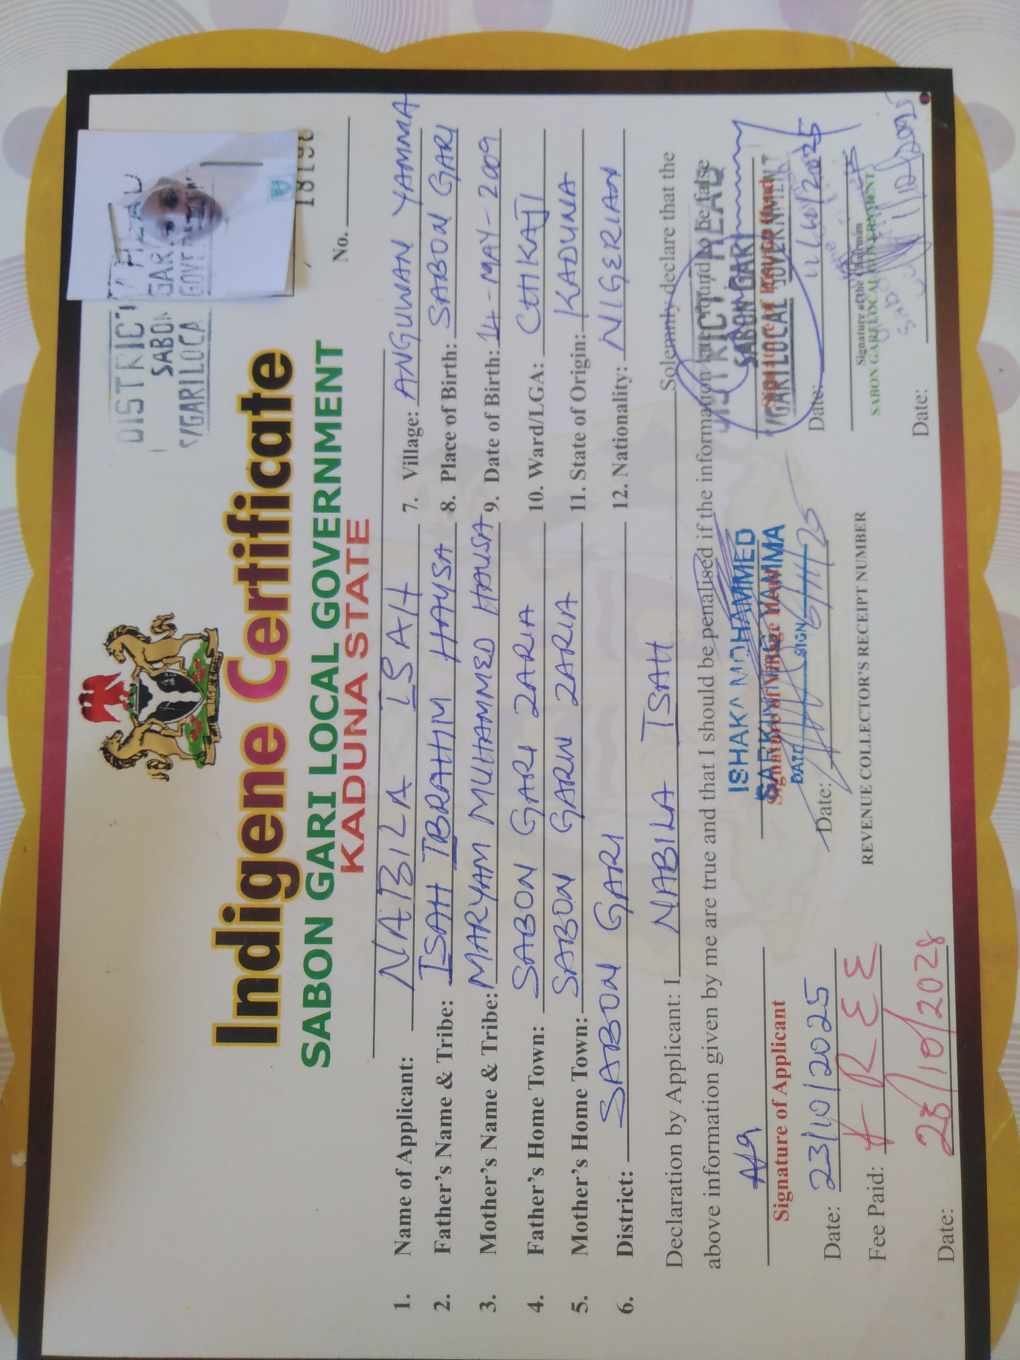 DISTRICT HEAD
SABON GARI
S/GARI LOCAL GOVERNMENT
Indigene Certificate
SABON GARI LOCAL GOVERNMENT
KADUNA STATE
No.
1. Name of Applicant: NABILA ISAH
2. Father's Name & Tribe: ISAH IBRAHIM HAUSA
3. Mother's Name & Tribe: MARYAM MUHAMMED HAUSA
4. Father's Home Town: SABON GARI ZARIA
5. Mother's Home Town: SABON GARIN ZARIA
6. District: SABON GARI
7. Village: ANGUWAN YAMMA
8. Place of Birth: SABON GARI
9. Date of Birth: 14-MAY-2009
10. Ward/LGA: CHIKAJI
11. State of Origin: KADUNA
12. Nationality: NIGERIAN
Declaration by Applicant: I NABILA ISAH Solemnly declare that the
above information given by me are true and that I should be penalised if the information are found to be false
Signature of Applicant
Date: 23/10/2025
Fee Paid: FREE
Date: 23/10/2025
ISHAKA MOHAMMED
SARKIN YAMMA
Signature of Village Head
DATE SIGN
Date: 6/11/25
REVENUE COLLECTOR'S RECEIPT NUMBER
DISTRICT HEAD
SABON GARI
S/GARI LOCAL GOVERNMENT
Date: 11/2025
Signature of the Chairman
SABON GARI LOCAL GOVERNMENT
Date: